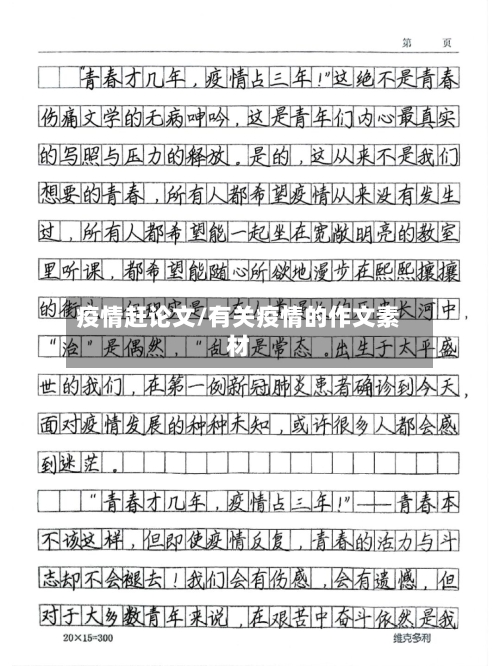 第 页
"青春才几年，疫情占三年！"这绝不是青春
伤痛文学的无病呻吟，这是青年们内心最真实
的写照与压力的释放。是的，这从来不是我们
想要的青春，所有人都希望疫情从来没有发生
过，所有人都希望能一起坐在宽敞明亮的教室
里听课，都希望能随心所欲地漫步在熙熙攘攘
的街 长河中，
疫情赶论文/有关疫情的作文素
材
"治"是偶然，"乱 是常态。出生于太平盛
世的我们，在第一例新冠肺炎患者确诊到今天，
面对疫情发展的种种未知，或许很多人都会感
到迷茫。
"青春才几年，疫情占三年！"——青春本
不该这样，但即使疫情反复，青春的活力与斗
志却不会褪去！我们会有伤感，会有遗憾，但
对于大多数青年来说，在艰苦中奋斗依然是我
20×15=300 维克多利